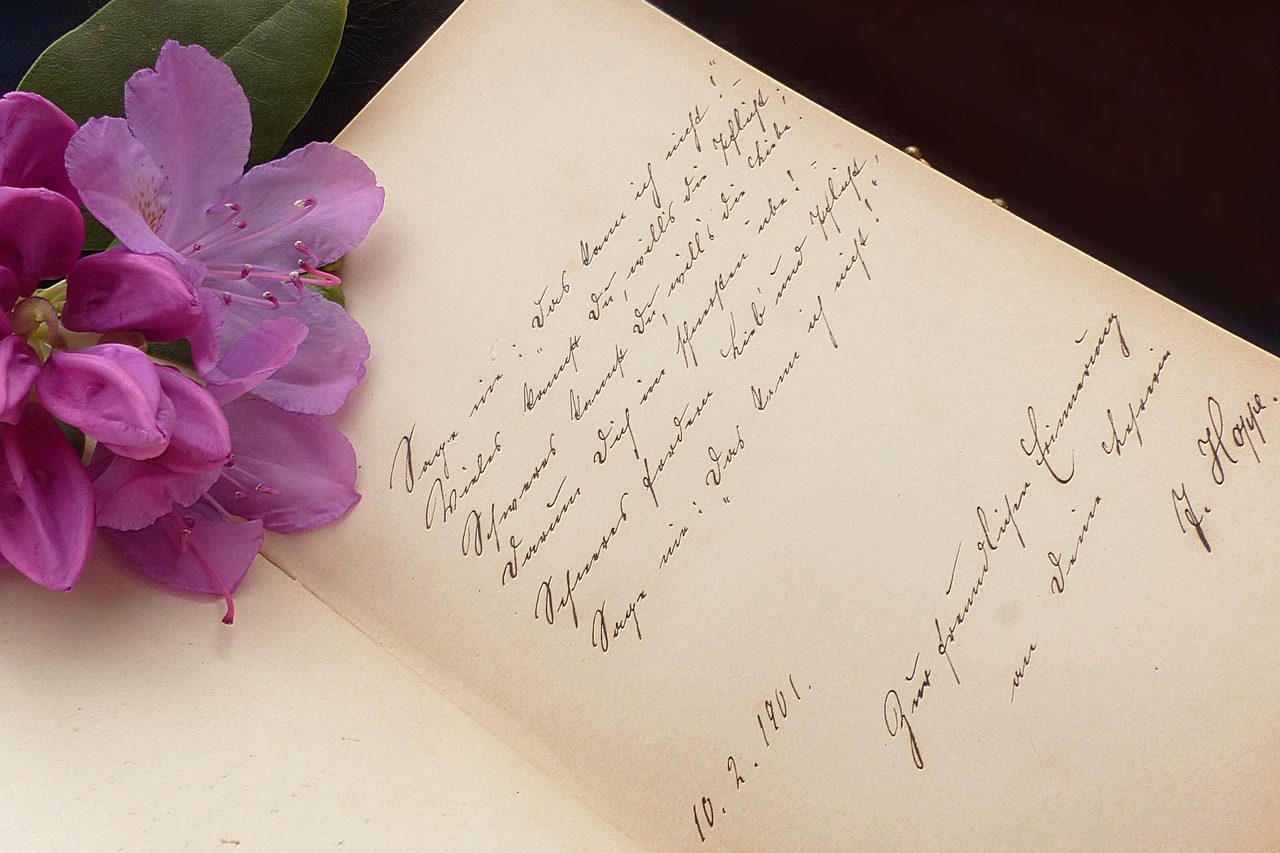 Sage nie: „Das kann ich nicht!“ –
Vieles kannst Du, will's die Pflicht;
Schweres kannst Du, will's die Liebe.
Darum Dich im Schwersten übe! –
Schweres fordern Lieb' und Pflicht;
Sage nie: „Das kann ich nicht!“
Zur freundlichen Erinnerung
an Deine Lehrerin
J. Hoppe.
10. 2. 1901.